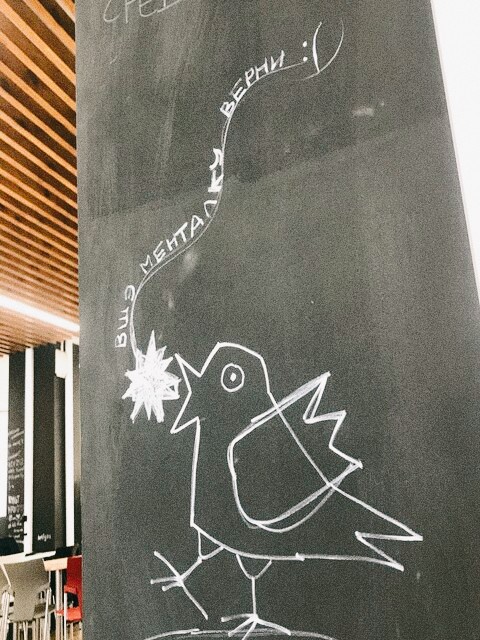 ВШЭ МЕНТАЛКУ ВЕРНИ :(